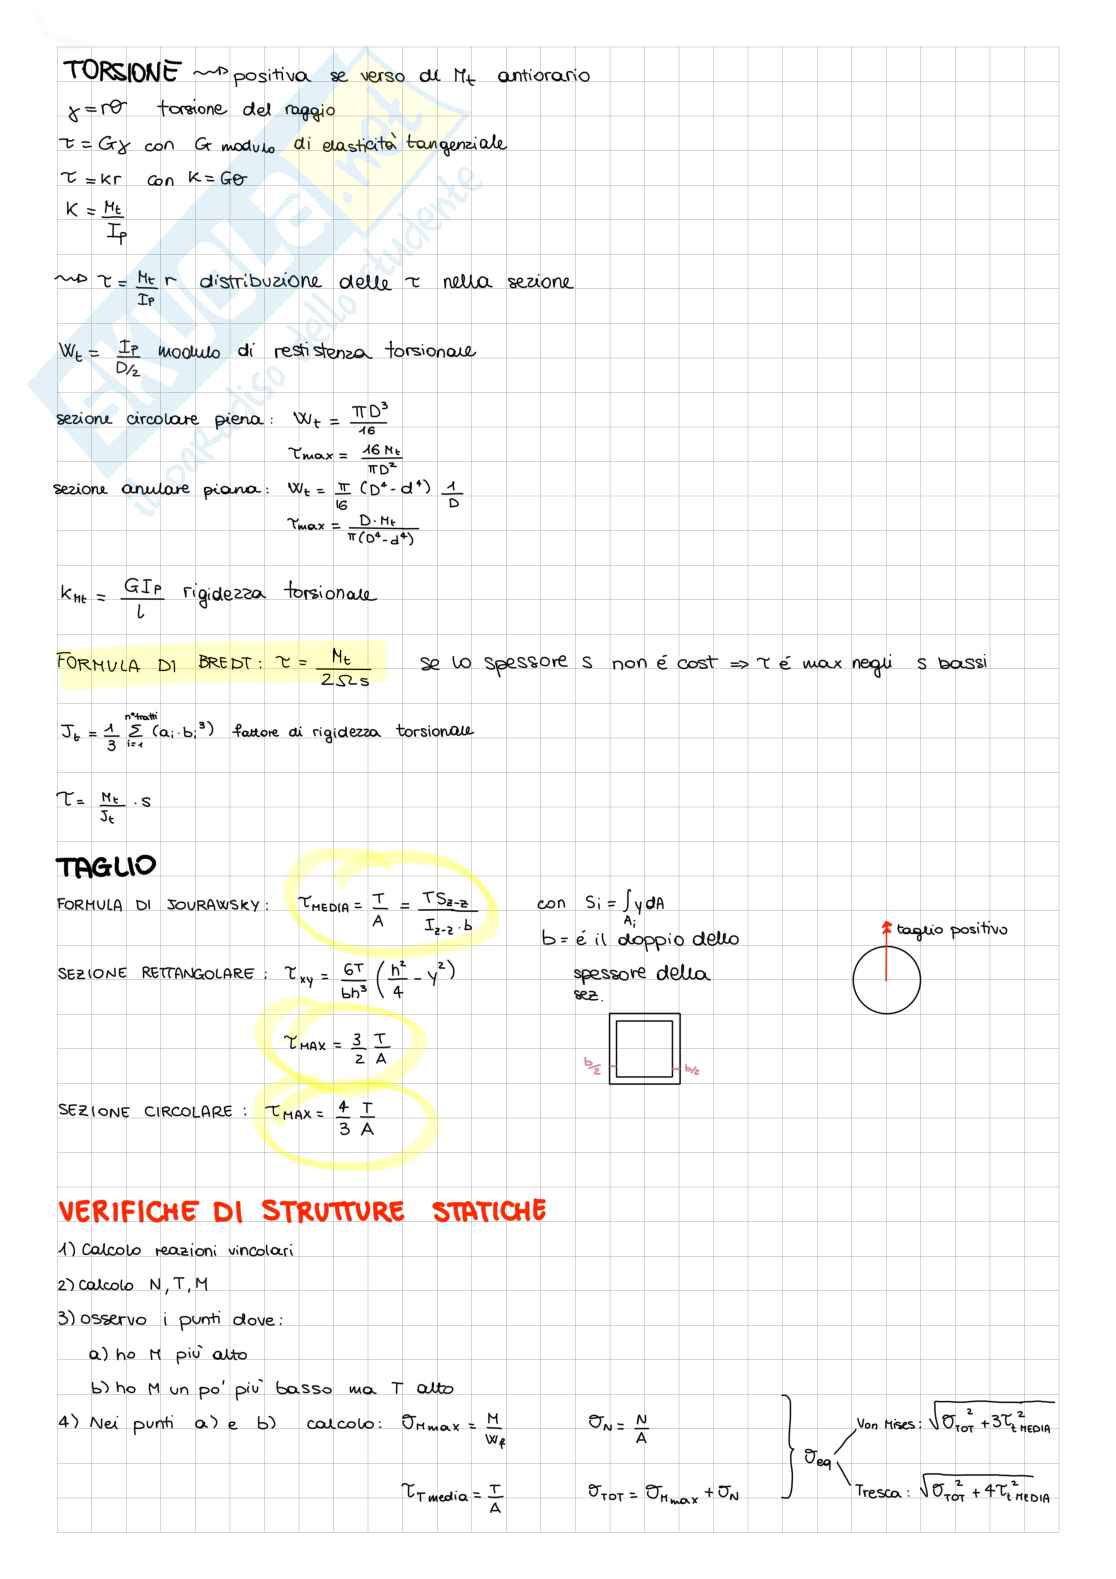 TORSIONE ⇝ positiva se verso di Mt antiorario
γ = rθ torsione del raggio
τ = Gγ con G modulo di elasticità tangenziale
τ = kr con K = Gθ
K = Mt / Ip
⇝ τ = Mt/Ip r distribuzione delle τ nella sezione
Wt = Ip / D/2 modulo di restistenza torsionale
sezione circolare piena: Wt = πD³/16
τmax = 16 Mt / πD²
sezione anulare piana: Wt = π/16 (D⁴ - d⁴) 1/D
τmax = D·Mt / π(D⁴-d⁴)
KMt = GIp / l rigidezza torsionale
FORMULA DI BREDT: τ = Mt / 2Ωs se lo spessore s non é cost ⇒ τ é max negli s bassi
Jt = 1/3 Σ i=1 n°tratti (ai·bi³) fattore di rigidezza torsionale
τ = Mt/Jt · s
TAGLIO
FORMULA DI JOURAWSKY: τMEDIA = T/A = TSz-z / Iz-z·b con Si = ∫Ai y dA
b = é il doppio dello
spessore della
sez.
taglio positivo
SEZIONE RETTANGOLARE: τxy = 6T/bh³ (h²/4 - y²)
τMAX = 3/2 T/A
b/2 b/2
SEZIONE CIRCOLARE: τMAX = 4/3 T/A
VERIFICHE DI STRUTTURE STATICHE
1) Calcolo reazioni vincolari
2) calcolo N, T, M
3) osservo i punti dove:
a) ho M più alto
b) ho M un po' più basso ma T alto
4) Nei punti a) e b) calcolo: σMmax = M/Wf σN = N/A
τTmedia = T/A σTOT = σMmax + σN
σeq
Von Mises: √σTOT² + 3τt MEDIA²
Tresca: √σTOT² + 4τt MEDIA²
SKUOLA.net
il paradiso dello studente